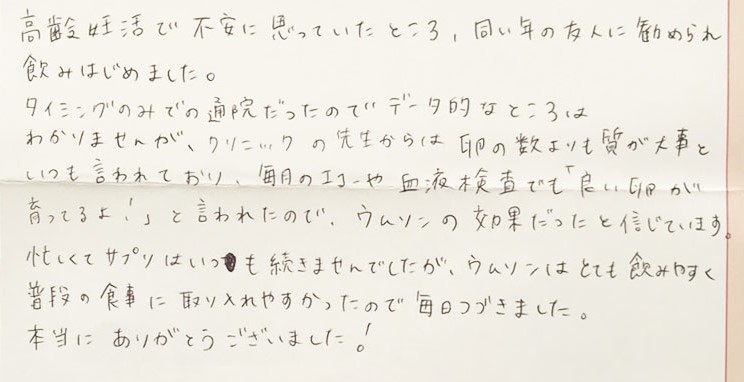 高齢妊活で不安に思っていたところ、同い年の友人に勧められ
飲みはじめました。
タイミングのみでの通院だったのでデータ的なところは
わかりませんが、クリニックの先生からは卵の数よりも質が大事と
いつも言われており、毎月のエコーや血液検査でも「良い卵が
育ってるよ！」と言われたので、ウムソンの効果だったと信じています。
忙しくてサプリはいつも続きませんでしたが、ウムソンはとても飲みやすく
普段の食事に取り入れやすかったので毎日つづきました。
本当にありがとうございました！